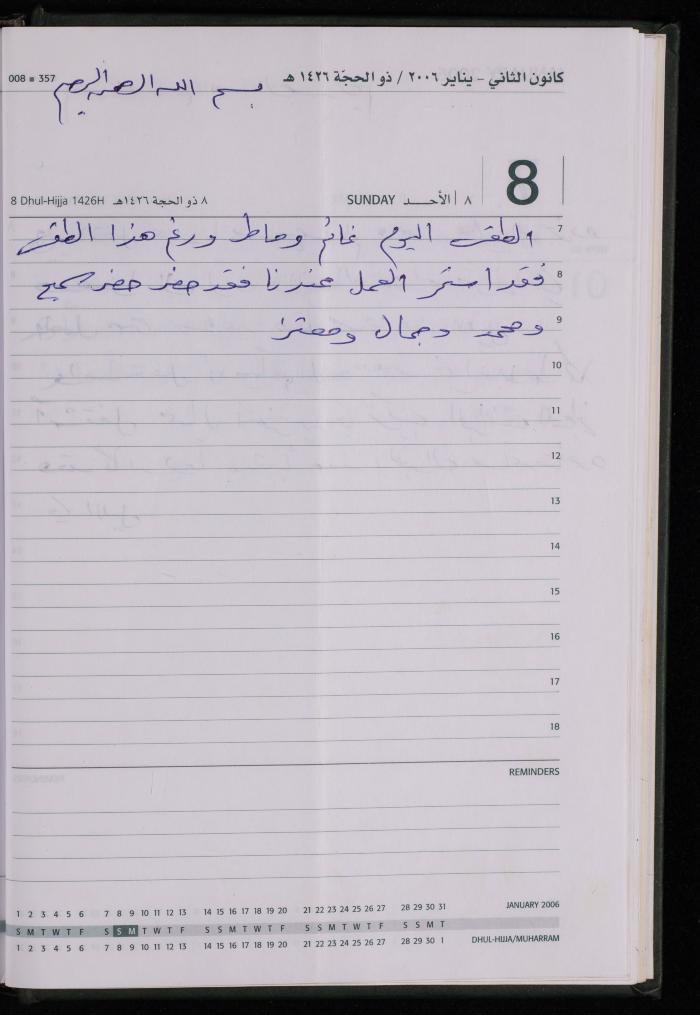 كانون الثاني - يناير ٢٠٠٦ / ذو الحجّة ١٤٢٦ هـ
008 ■ 357
بسم الله الرحمن الرحيم
8
٨ الأحـــد SUNDAY
٨ ذو الحجة ١٤٢٦هـ 8 Dhul-Hijja 1426H
7 الطقس اليوم غائم وماطر ورغم هذا الطقس
8 فقد استمر العمل عندنا فقد حضر حضر سميح
9 ومحمد وجمال ومعتز
10
11
12
13
14
15
16
17
18
REMINDERS
1 2 3 4 5 6 7 8 9 10 11 12 13 14 15 16 17 18 19 20 21 22 23 24 25 26 27 28 29 30 31 JANUARY 2006
S M T W T F S S M T W T F S S M T W T F S S M T W T F S S M T
1 2 3 4 5 6 7 8 9 10 11 12 13 14 15 16 17 18 19 20 21 22 23 24 25 26 27 28 29 30 1 DHUL-HIJJA/MUHARRAM